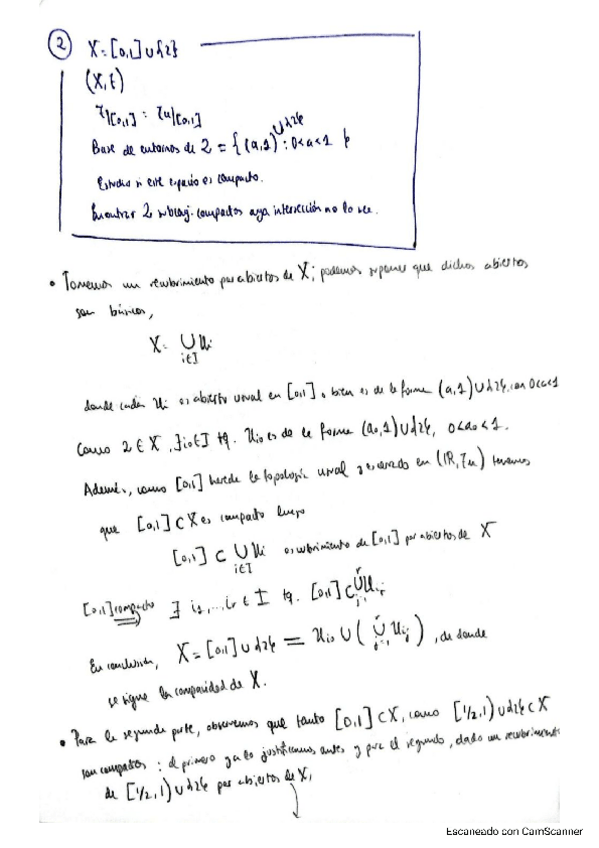 2 X = [0,1] ∪ {2}
(X, τ)
τ|[0,1] = τu|[0,1]
Base de entornos de 2 = { (a,1) ∪ {2} : 0<a<1 }
Estudia si este espacio es compacto.
Encontrar 2 subconj. compactos cuya intersección no lo sea.
• Tomemos un recubrimiento por abiertos de X; podemos suponer que dichos abiertos
son básicos,
X = ∪ Ui
i∈I
donde cada Ui es abierto usual en [0,1] o bien es de la forma (a,1) ∪ {2} con 0<a<1
Como 2 ∈ X, ∃ i0 ∈ I tq. Ui0 es de la forma (a0,1) ∪ {2}, 0<a0<1.
Además, como [0,1] hereda la topología usual y es cerrado en (ℝ, τu) tenemos
que [0,1] ⊂ X es compacto luego
[0,1] ⊂ ∪ Ui es recubrimiento de [0,1] por abiertos de X
i∈I
[0,1] compacto ∃ i1, ..., ir ∈ I tq. [0,1] ⊂ ∪ Uij
En conclusión, X = [0,1] ∪ {2} = Ui0 ∪ ( ∪ Uij ), de donde
se sigue la compacidad de X.
• Para la segunda parte, observemos que tanto [0,1] ⊂ X, como [1/2,1) ∪ {2} ⊂ X
son compactos: el primero ya lo justificamos antes y para el segundo, dado un recubrimiento
de [1/2,1) ∪ {2} por abiertos de X,
Escaneado con CamScanner